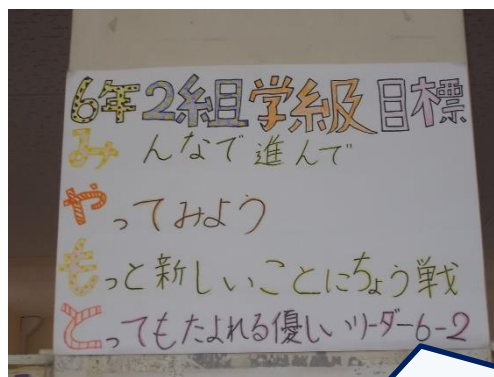 6年2組学級目標
みんなで進んで
やってみよう
もっと新しいことにちょう戦
とってもたよれる優しいリーダー6-2